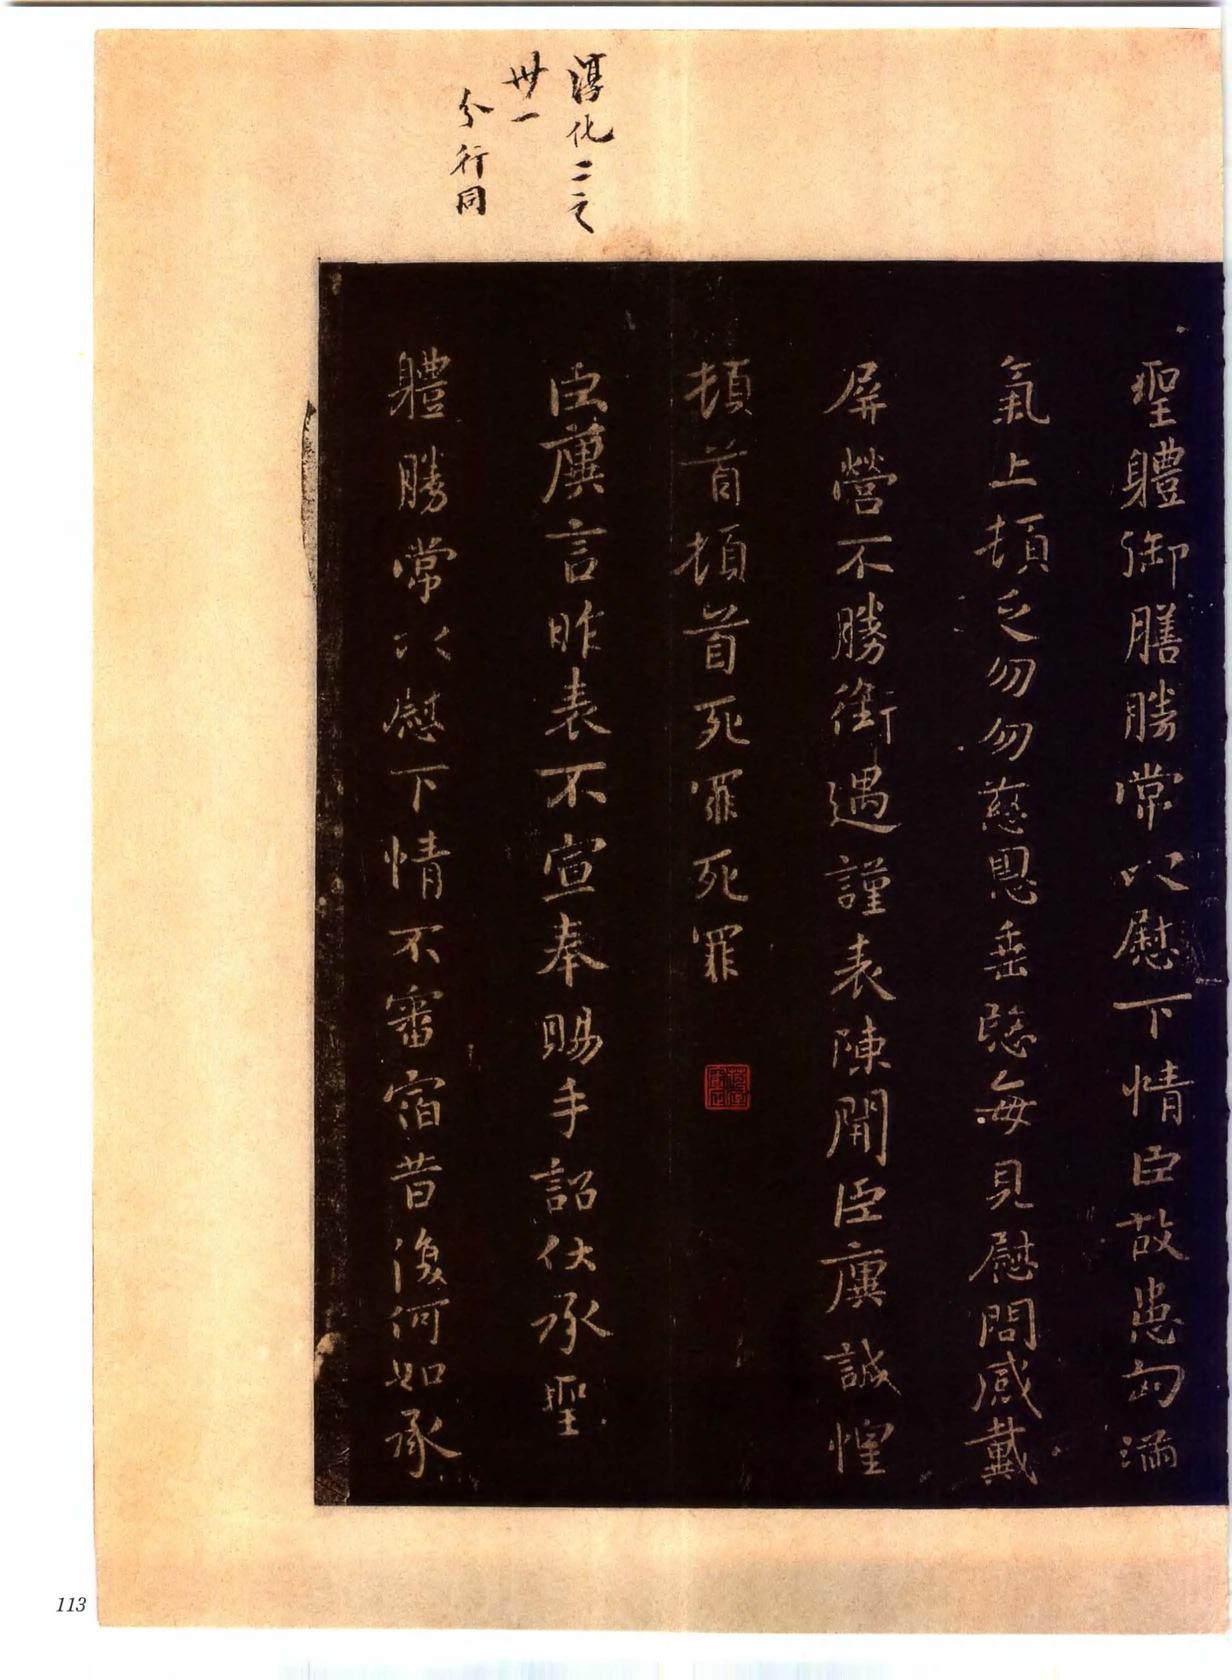 淳化二之
卅一
分行同
聖體御膳勝常以慰下情臣故患匈滿
氣上頓乏勿勿慈恩垂愍每見慰問感戴
屏營不勝銜遇謹表陳聞臣廙誠惶
頓首頓首死罪死罪
臣廙言昨表不宣奉賜手詔伏承聖
體勝常以慰下情不審宿昔復何如承
113